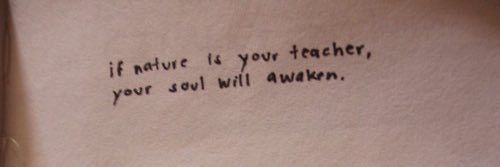 if nature is your teacher,
your soul will awaken.